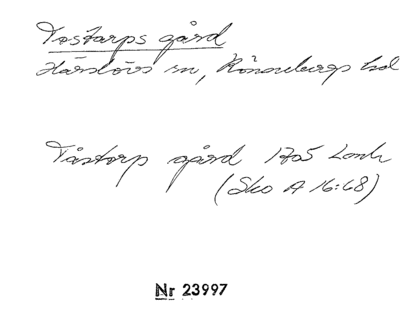 Tostarps gård
Härslövs sn, Rönneberga hd
Tåstorp gård 1705 Lantm
(Sko A 16:68)
Nr 23997